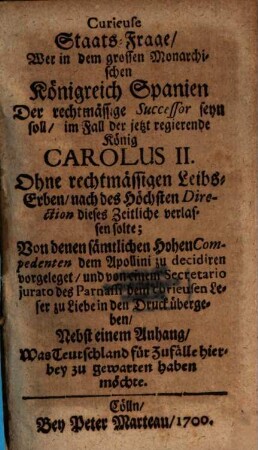 Curieuse
Staats-Frage/
Wer in dem grossen Monarchi-
schen
Königreich Spanien
Der rechtmässige Successor seyn
soll/ im Fall der jetzt regierende
König
CAROLUS II.
Ohne rechtmässigen Leibs-
Erben/ nach des Höchsten Dire-
ction dieses Zeitliche verlas-
sen solte;
Von denen sämtlichen Hohen Com-
pedenten dem Apollini zu decidiren
vorgeleget/ und von einem Secretario
jurato des Parnassi dem curieusen Le-
ser zu Liebe in den Druck überge-
ben/
Nebst einem Anhang/
Was Teutschland für Zufälle hier-
bey zu gewarten haben
möchte.
Cölln/
Bey Peter Marteau/ 1700.